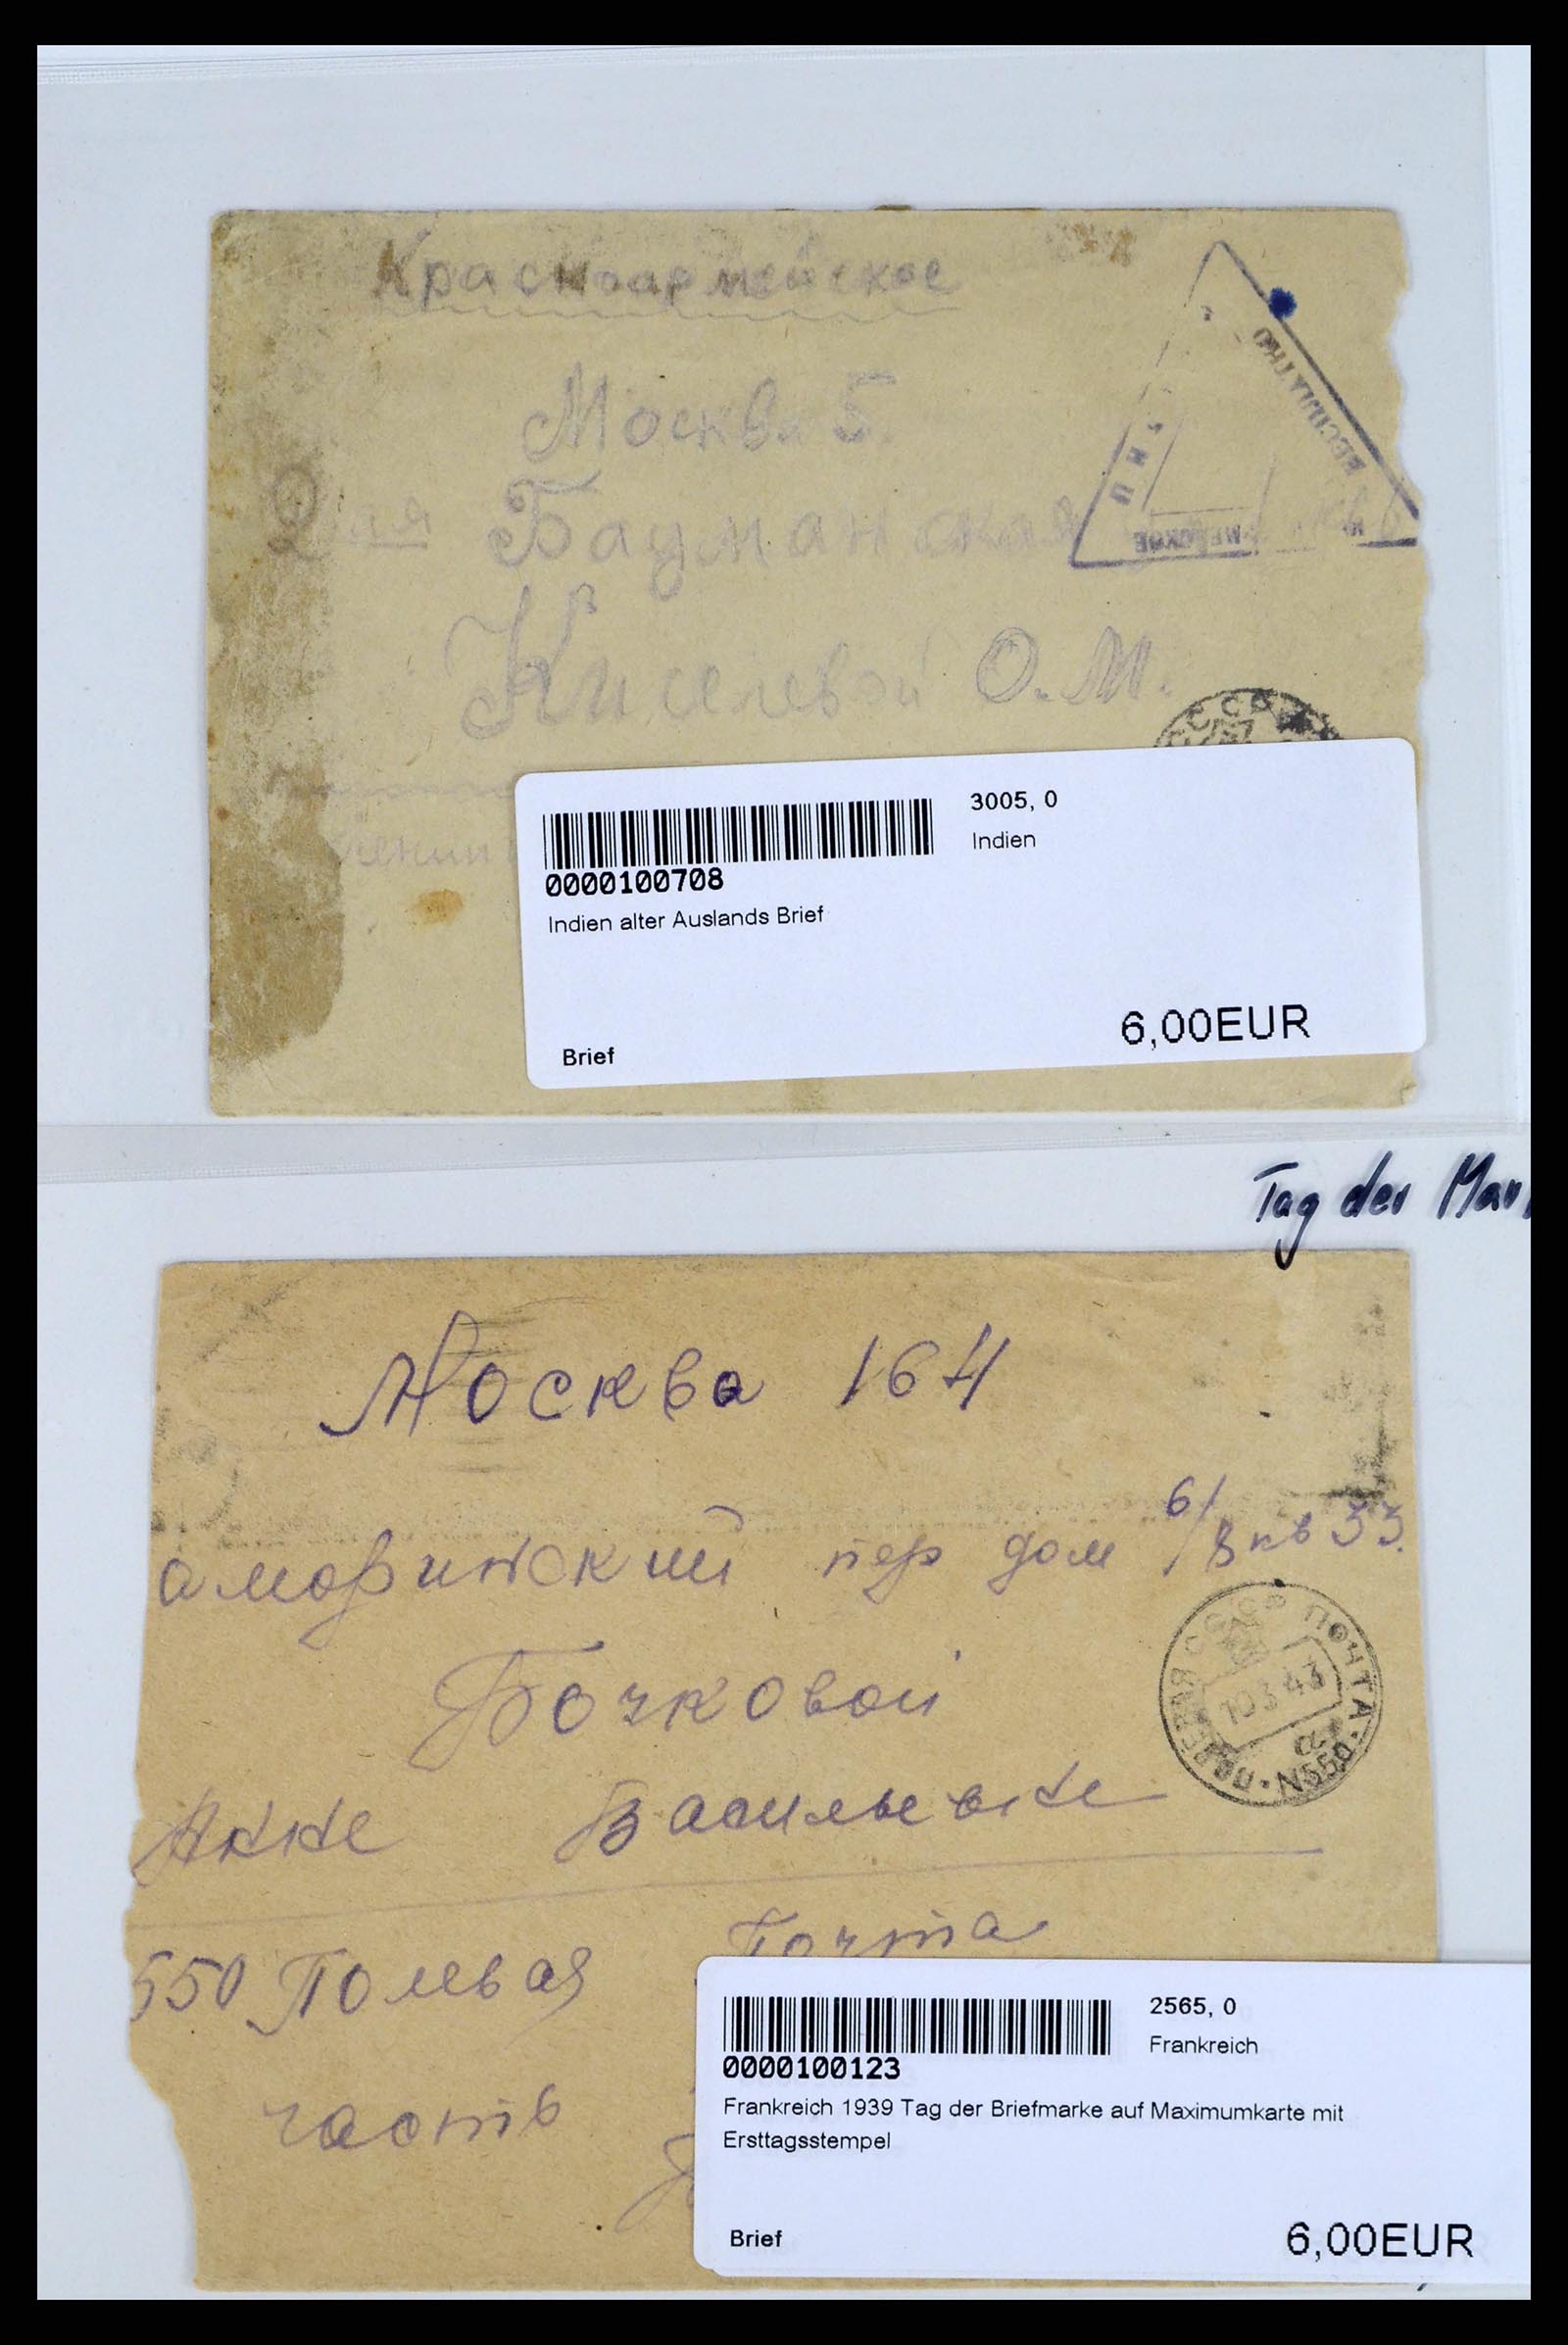 Красноармейское
Москва 5.
2 ая Бауманская
Киселевой О. М.
БЕСПЛАТНО
3005, 0
Indien
0000100708
Indien alter Auslands Brief
6,00EUR
Brief
Tag der Mar
Москва 164
пер дом 6/8 кв 33.
Бочковой
Анне Васильевне
ПОЛЕВАЯ СССР ПОЧТА
10 3 43
N550
550 Полевая Почта
часть
2565, 0
Frankreich
0000100123
Frankreich 1939 Tag der Briefmarke auf Maximumkarte mit
Ersttagsstempel
Brief
6,00EUR